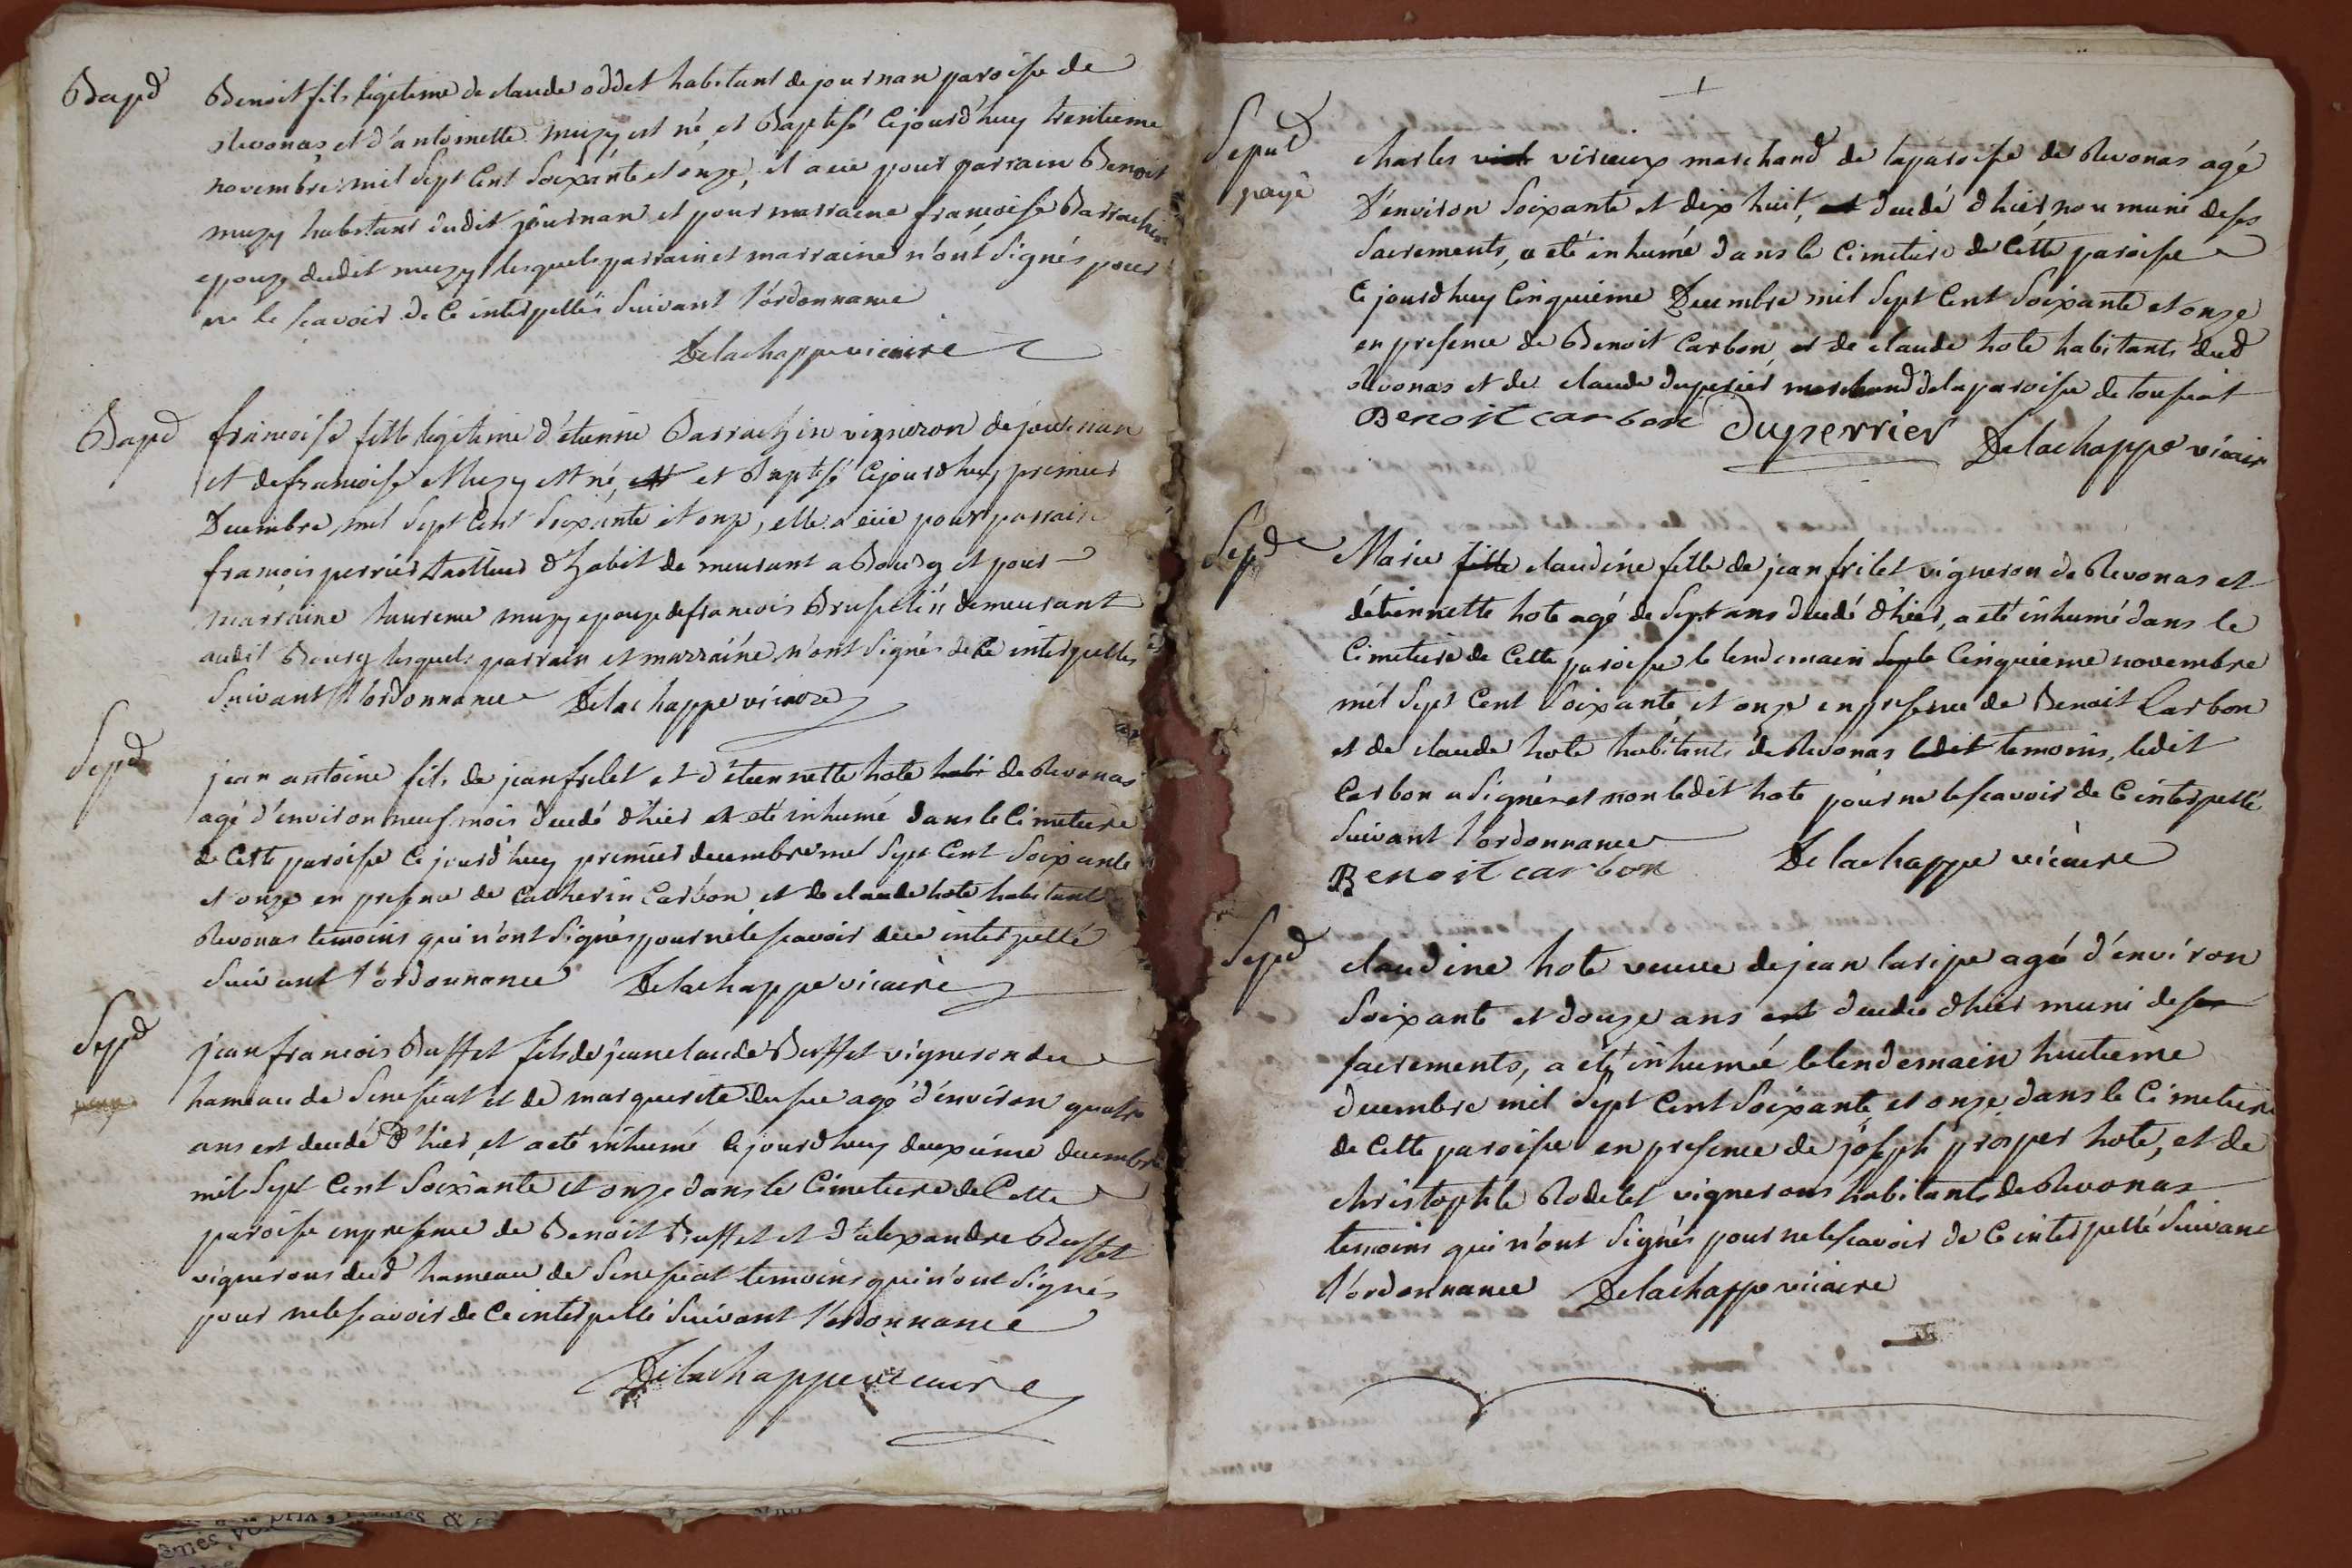 Bapd
Benoit fils légitime de claude oddet habitant de journan paroisse de
Revonas et d'antoinette muzy est né, et Baptisé Cejourd'huy trentieme
novembre mil Sept Cent Soixante et onze, et a eu pour parrain Benoit
muzy habitant dudit journan et pour marraine françoise Barrachin
epouze dudit muzy lesquels parrain et marraine n'ont Signés pour
ne le scavoir de Ce interpellés Suivant l'ordonnance
Delachappe vicaire
Bapd
françoise fille legitime d'etienne Barrachin vigneron de journan
et de françoise Muzy est né, et et Baptisé Cejourdhuy premier
Decembre mil Sept Cent Soixante et onze, elle a eüe pour parrain
françois perrier tailleur d'habit demeurant a Bourg et pour
marraine laurence muzy epouze de francois Brusselin demeurant
audit Bourg lesquels parrain et marraine n'ont Signés de Ce interpellés
Suivant l'ordonnance Delachappe vicaire
Sepd
jean antoine fils de jean frilet et d'étiennette hote habi de Revonas
agé d'environ neuf mois decedé d'hier et eté inhumé dans le Cimetiere
de Cette paroisse Cejourd'huy premier decembre mil Sept Cent Soixante
et onze en presence de Catherin Carbon et de claude hote habitants
Revonas temoins qui n'ont Signés pour ne le scavoir de ce interpellé
Suivant l'ordonnance Delachappe vicaire
Sepd
jean francois Buffet fils de jean claude Buffet vigneron du
hameau de Senissiat et de marguerite agé d'environ quatre
ans est decedé d'hier, et a eté inhumé Cejourdhuy deuxieme decembre
mil Sept Cent Soixante et onze dans le Cimetiere de Cette
paroisse en presence de Benoit Buffet et d'alexandre Buffet
vignerons dud hameau de Senissiat temoins qui n'ont Signés
pour ne le scavoir de Ce interpellé Suivant l'ordonnance
Delachappe vicaire
Sepult
payé
charles virieux marchand de la paroisse de Revonas agé
d'environ Soixante et dix huit, est decedé d'hier non muni de ses
Sacrements, a eté inhumé dans le Cimetiere de Cette paroisse
Cejourdhuy Cinquieme Decembre mil Sept Cent Soixante et onze
en presence de Benoit Carbon et de claude hote habitants dud
Revonas et de claude duperier marchand de la paroisse de toussiat
Benoit carbon Duperrier Delachappe vicaire
Sepd
Marie fille claudine fille de jean frilet vigneron de Revonas et
d'étiennette hote agé de Sept ans decedé d'hier, a eté inhumé dans le
Cimetiere de Cette paroisse le lendemain Cinquieme novembre
mil Sept Cent Soixante et onze en presence de Benoit Carbon
et de claude hote habitants de Revonas temoins, ledit
Carbon a Signé et non ledit hote pour ne le scavoir de Ce interpellé
Suivant l'ordonnance
Benoit carbon Delachappe vicaire
Sepd
claudine hote veuve de jean laripe agé d'environ
Soixante et douze ans est decedée d'hier muni de ses
sacrements, a eté inhumée le lendemain huitieme
decembre mil Sept Cent Soixante et onze dans le Cimetiere
de Cette paroisse en presence de joseph prosper hote, et de
christophle Rodelet vignerons habitants de Revonas
temoins qui n'ont Signés pour ne le scavoir de Ce interpellé Suivant
l'ordonnance Delachappe vicaire